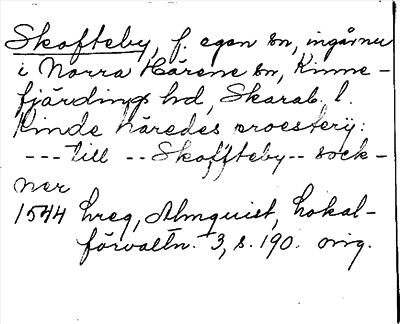 Skofteby, f. egen sn, ingår nu
i Norra Härene sn, Kinne-
fjärdings hd, Skarab. l.
Kinde häredes proesterij:
--- till -- Skoffteby -- sock-
ner
1544 hreg, Almquist, Lokal-
förvaltn. 3, s. 190. orig.